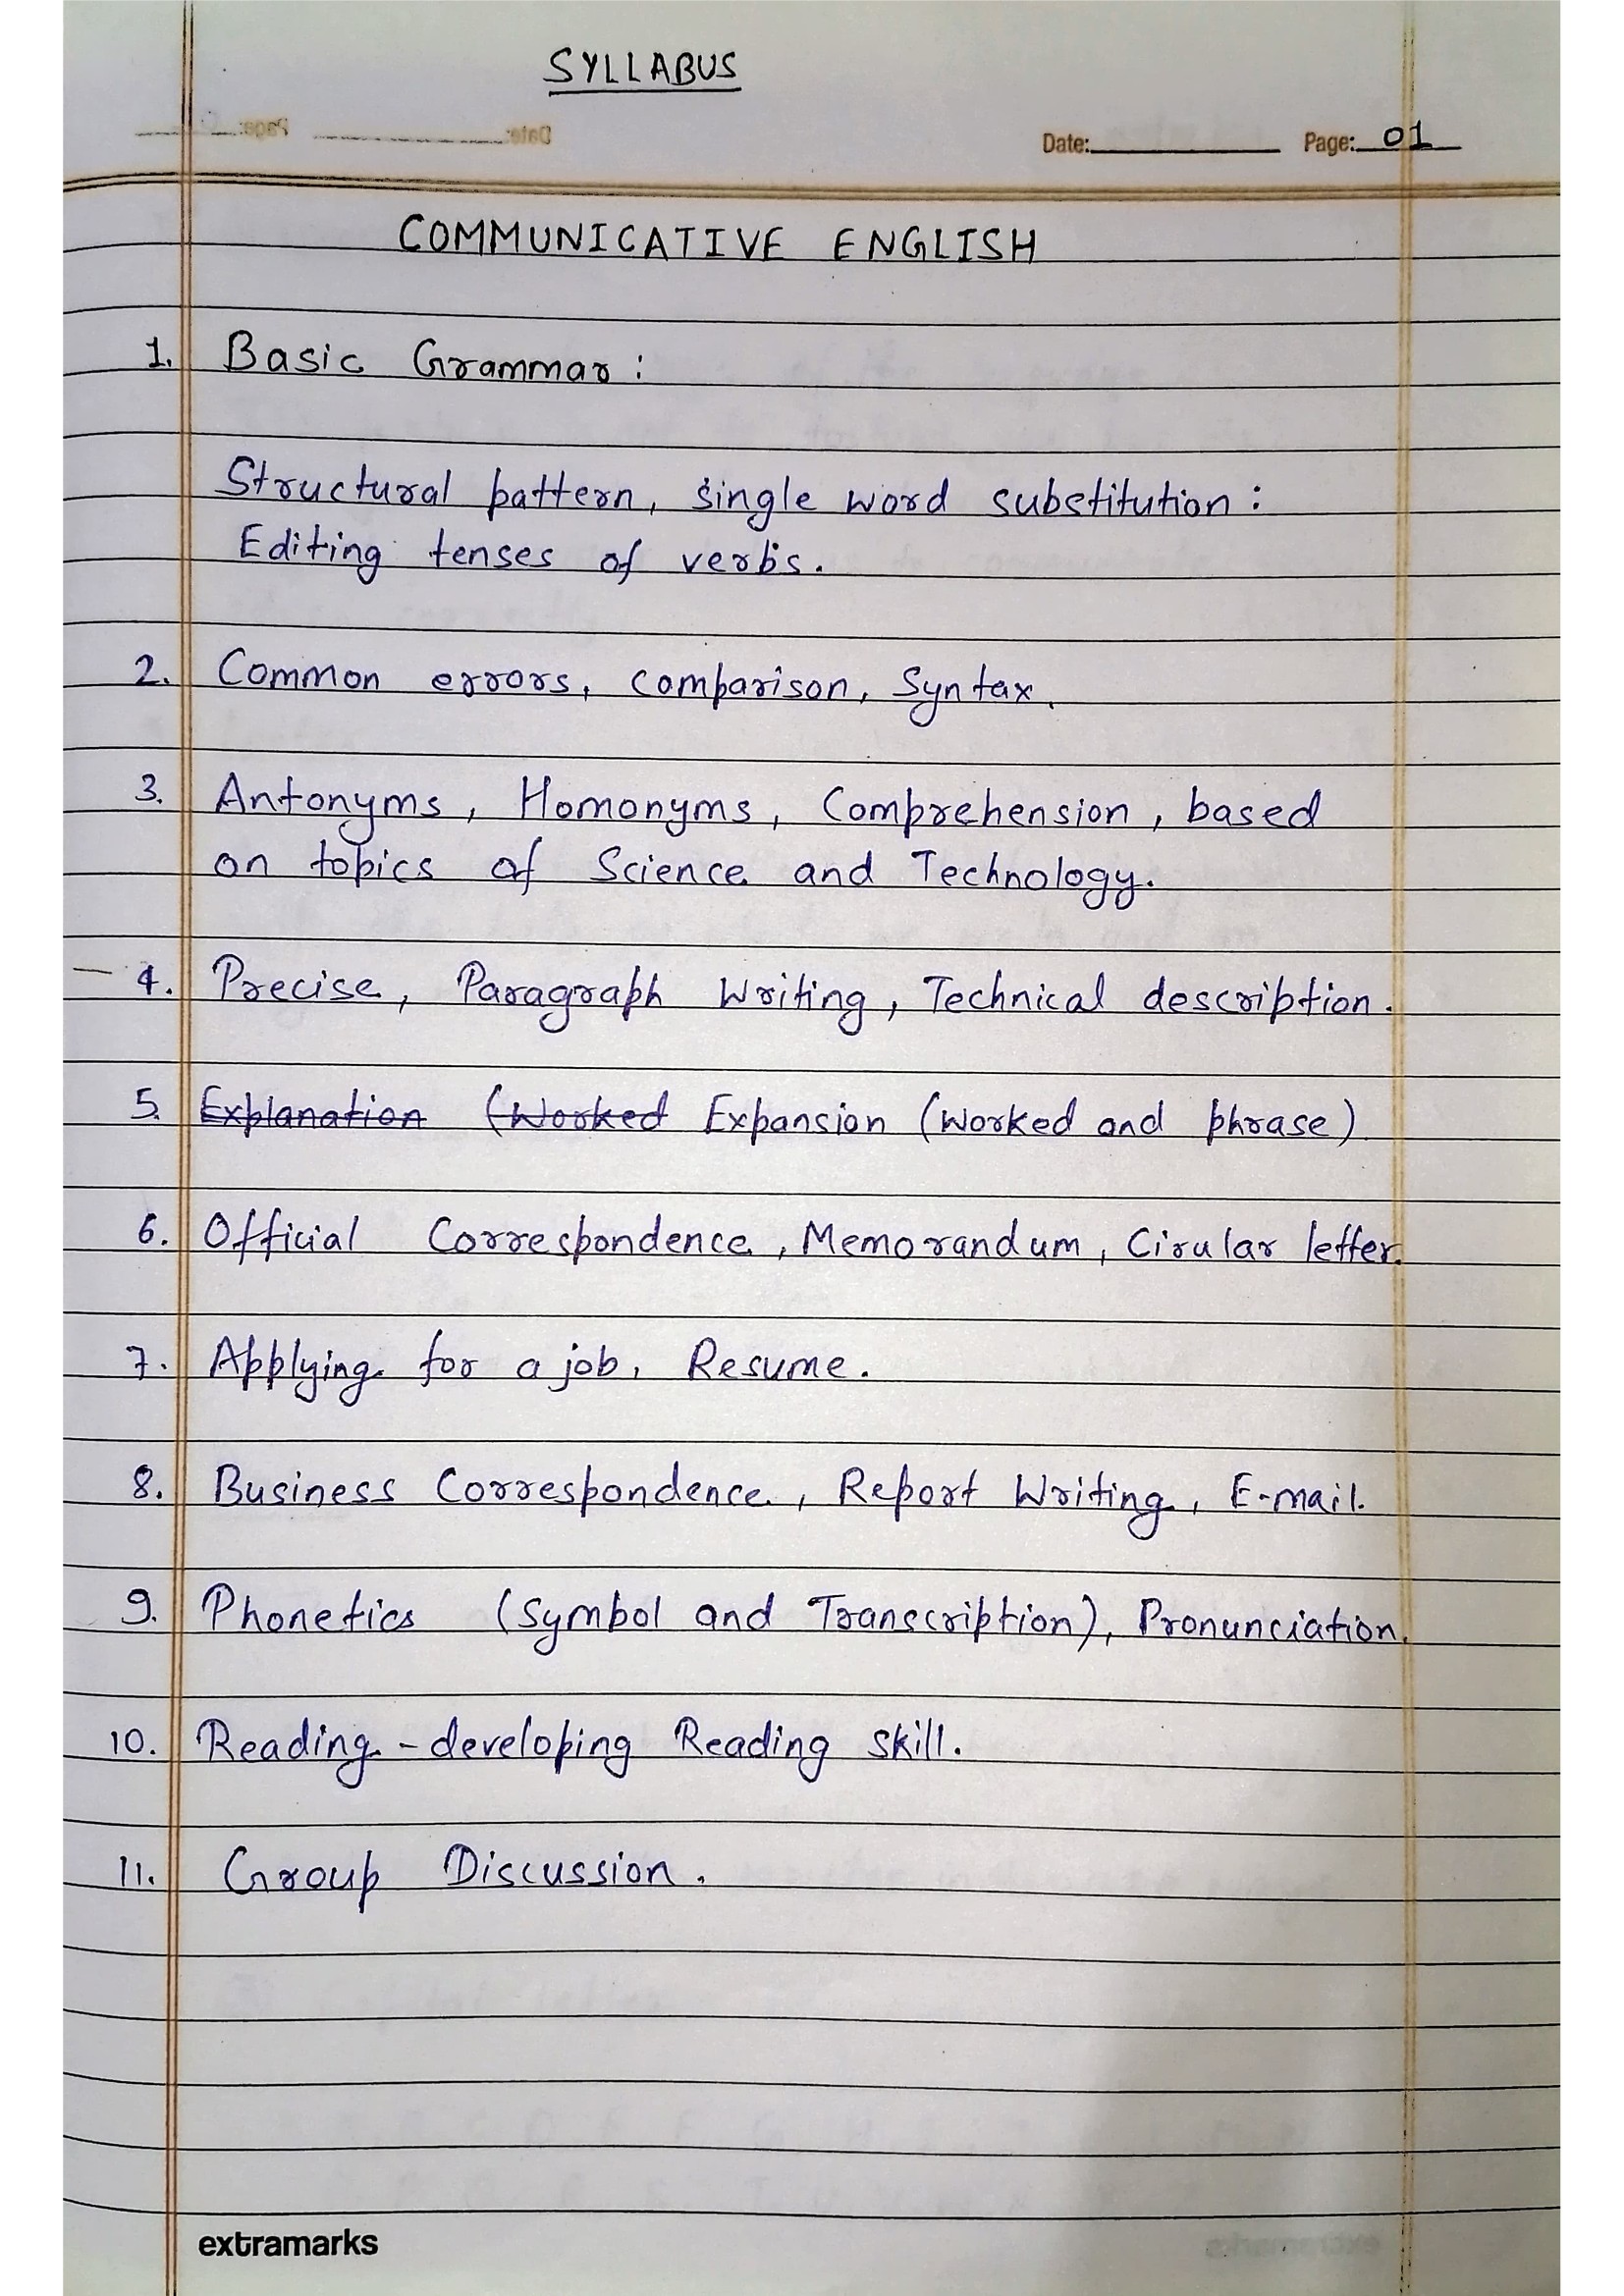 SYLLABUS
Date: Page: 01
COMMUNICATIVE ENGLISH
1. Basic Grammar :
Structural pattern, single word substitution :
Editing tenses of verbs.
2. Common errors, comparison, Syntax.
3. Antonyms, Homonyms, Comprehension, based
on topics of Science and Technology.
4. Precise, Paragraph Writing, Technical description.
5. Explanation (Worked Expansion (Worked and phrase)
6. Official Correspondence, Memorandum, Cirular letter.
7. Applying for a job, Resume.
8. Business Correspondence, Report Writing, E-mail.
9. Phonetics (Symbol and Transcription), Pronunciation.
10. Reading - developing Reading skill.
11. Group Discussion.
extramarks